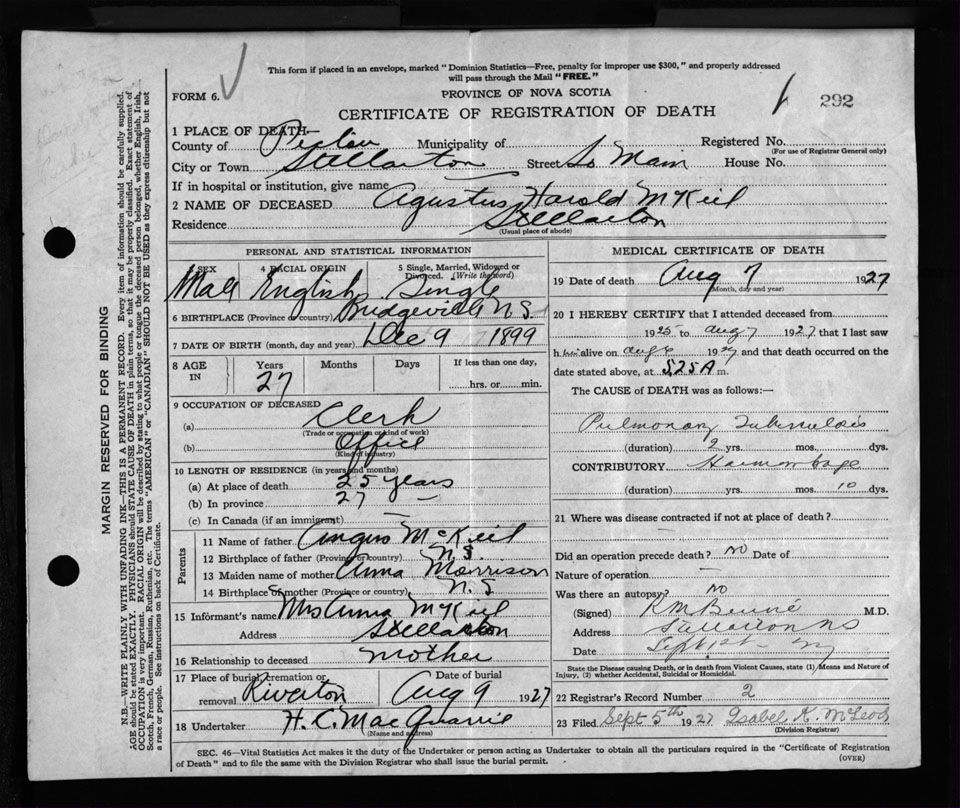 This form if placed in an envelope, marked "Dominion Statistics—Free, penalty for improper use $300," and properly addressed
will pass through the Mail "FREE."
FORM 6.
PROVINCE OF NOVA SCOTIA
292
CERTIFICATE OF REGISTRATION OF DEATH
1 PLACE OF DEATH—
County of Pictou Municipality of Registered No.
(For use of Registrar General only)
City or Town Stellarton Street So Main House No.
If in hospital or institution, give name
2 NAME OF DECEASED Agustus Harold McKeil
Residence Stellarton
(Usual place of abode)
PERSONAL AND STATISTICAL INFORMATION
SEX 4 RACIAL ORIGIN 5 Single, Married, Widowed or
Divorced. (Write the word)
Male English Single
6 BIRTHPLACE (Province or country) Bridgeville N.S.
7 DATE OF BIRTH (month, day and year) Dec 9 1899
8 AGE IN Years Months Days If less than one day,
27 hrs. or min.
9 OCCUPATION OF DECEASED
(a) Clerk
(Trade or occupation or kind of work)
(b) Office
(Kind of industry)
10 LENGTH OF RESIDENCE (in years and months)
(a) At place of death 25 years
(b) In province 27 —
(c) In Canada (if an immigrant) —
Parents
11 Name of father Angus McKeil
12 Birthplace of father (Province or country) N.S.
13 Maiden name of mother Anna Morrison
14 Birthplace of mother (Province or country) N.S
15 Informant's name Mrs Anna McKeil
Address Stellarton
16 Relationship to deceased Mother
17 Place of burial, cremation or Date of burial
removal Riverton Aug 9 1927
18 Undertaker H. C. MacQuarrie
(Name and address)
MEDICAL CERTIFICATE OF DEATH
19 Date of death Aug 7 1927
(Month, day and year)
20 I HEREBY CERTIFY that I attended deceased from
1925 to Aug 7 1927 that I last saw
h him alive on Aug 6 1927 and that death occurred on the
date stated above, at 5.25 A m.
The CAUSE of DEATH was as follows:—
Pulmonary Tuberculosis
(duration) 2 yrs. mos. dys.
CONTRIBUTORY Haemorrhage
(duration) yrs. mos. 10 dys.
21 Where was disease contracted if not at place of death?
—
Did an operation precede death? NO Date of
Nature of operation —
Was there an autopsy? NO
(Signed) M.D.
Address Stellarton NS
Date Sept 1st
State the Disease causing Death, or in death from Violent Causes, state (1) Means and Nature of
Injury, (2) whether Accidental, Suicidal or Homicidal.
22 Registrar's Record Number 2
23 Filed Sept 5th 1927 Isabel K. McLeod
(Division Registrar)
SEC. 46—Vital Statistics Act makes it the duty of the Undertaker or person acting as Undertaker to obtain all the particulars required in the "Certificate of Registration
of Death" and to file the same with the Division Registrar who shall issue the burial permit.
(OVER)
MARGIN RESERVED FOR BINDING
N.B.—WRITE PLAINLY WITH UNFADING INK—THIS IS A PERMANENT RECORD. Every item of information should be carefully supplied.
AGE should be stated EXACTLY. PHYSICIANS should STATE CAUSE OF DEATH in plain terms, that it may be properly classified. Exact statement of
OCCUPATION is very important. RACIAL ORIGIN will be described by stating to what people or tongue the deceased person belonged, whether English, Irish,
Scotch, French, German, Russian, Ruthenian, etc. The terms "AMERICAN" or "CANADIAN" SHOULD NOT BE USED as they express citizenship but not
a race or people. See instructions on back of Certificate.